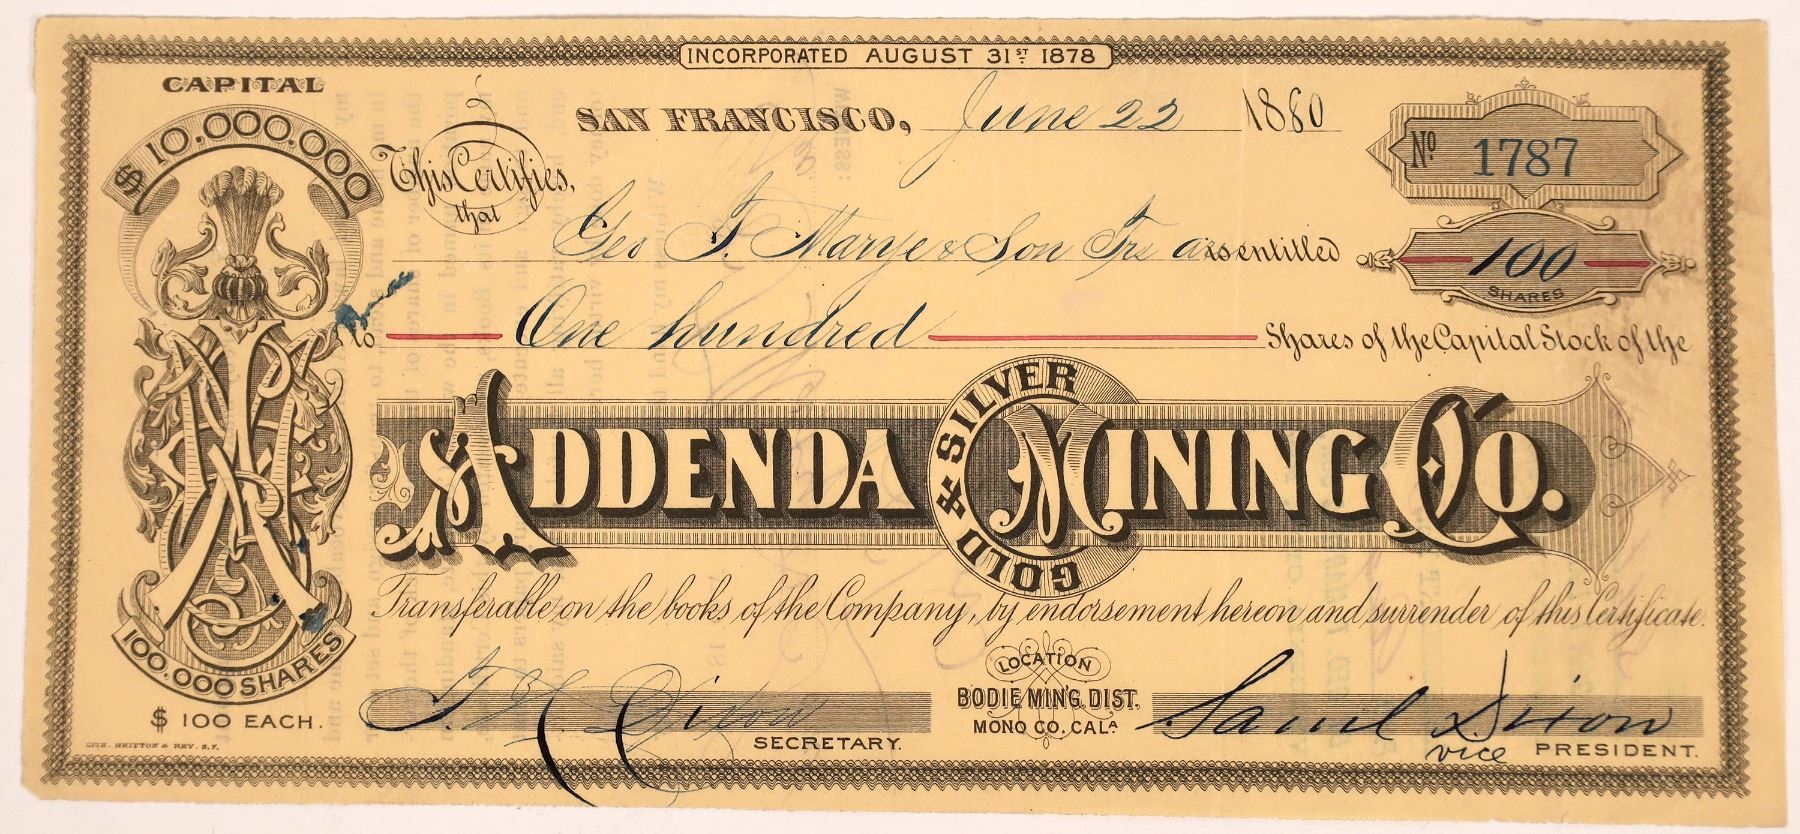 INCORPORATED AUGUST 31ST 1878
CAPITAL
$10.000.000
SAN FRANCISCO, June 22 1880
No 1787
This Certifies,
that
Geo T. Marye & Son Trs are entitled
100
SHARES
to One hundred Shares of the Capital Stock of the
ADDENDA GOLD & SILVER MINING Co.
Transferable on the books of the Company, by endorsement hereon and surrender of this Certificate.
100.000 SHARES
$ 100 EACH.
LOCATION
BODIE MING. DIST.
MONO CO. CALA
Dixon
SECRETARY.
Saml Dixon
vice PRESIDENT.
LITH. BRITTON & REY. S.F.